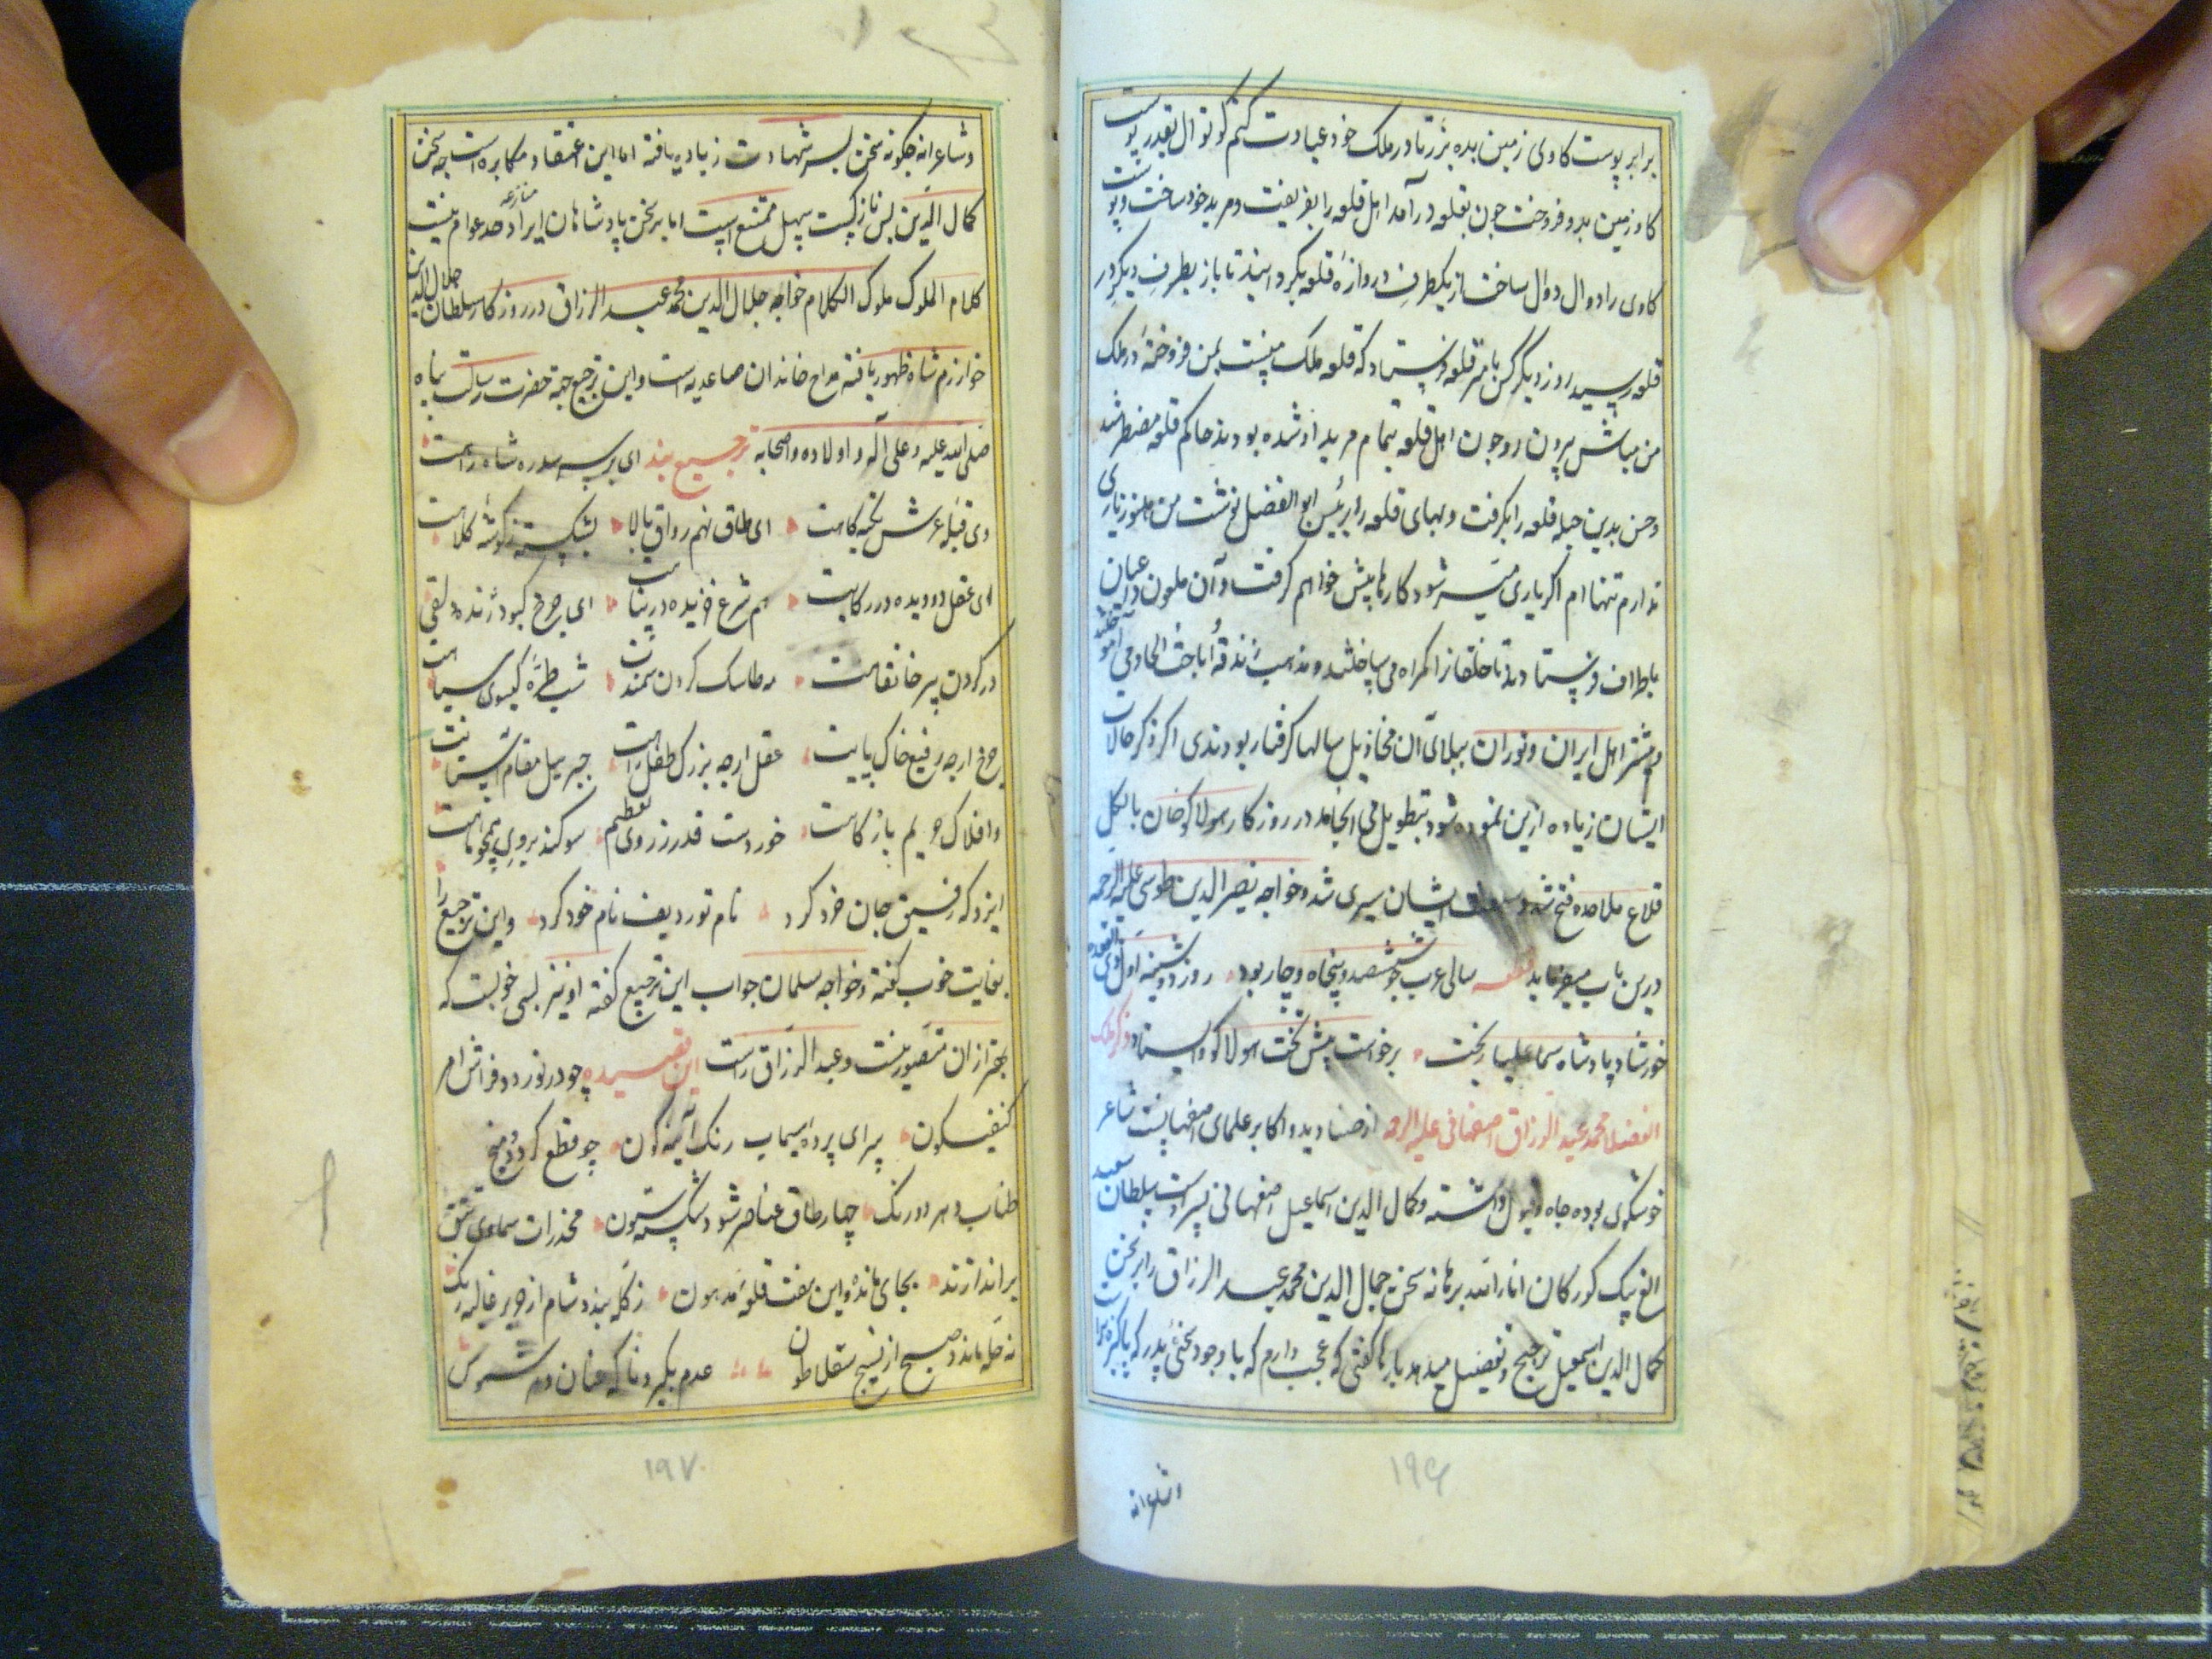 برابر پوست کاوی زمین بده بزر تا در ملک خود عبادت کنم کوتوال بقدر پوست
کاو زمین بدو فروخت چون بقلعه درآمد اهل قلعه را بفریفت و مرید خود ساخت و پوست
کاوی را دوال دوال ساخت از یکطرف دروازه قلعه بکردانید تا باز بطرف دیکر در
قلعه رسید روز دیکر کس بامیر قلعه فرستاد که قلعه ملک منست بمن فروخته در ملک
من مباش بیرون رو چون اهل قلعه بتمام مرید او شده بودند حاکم قلعه مضطر شد
و حسن بدین حیله قلعه را بکرفت و بهای قلعه را برئیس ابوالفضل نوشت من هنوز یاری
ندارم تنها ام اکر یاری میسر شود کارها پیش خواهم کرفت و آن ملعون داعیان
باطراف فرستاد تا خلقانرا کمراه می ساختند و مذهب زندقه و اباحت و الحاد می آموختند
و بیشتر اهل ایران و توران ببلای آن مخاذیل سالها کرفتار بودندی اکر ذکر حالات
ایشان زیاده ازین نموده شود بتطویل می انجامد در روزکار هولاکو خان بالکل
قلاع ملاحده فتح شد و ایشان سپری شد و خواجه نصیر الدین طوسی علیه الرحمه
درین باب میفرماید قطعه سالی عرب چو ششصد و پنجاه و چار بود روز دوشنبه اول ذی القعده
خورشاد پادشاه سماعیلیان ز تخت برخواست پیش تخت هولاکو و ایستاد ذکر ملک
الفضلا محمد عبد الرزاق اصفهانی علیه الرحمه از صنادید و اکابر علمای اصفهانست شاعر
خوشکوی بوده جاه و قبول داشته و کمال الدین اسماعیل اصفهانی پسر اوست سلطان سعید
الغ بیک کورکان انار الله برهانه سخن جمال الدین محمد عبد الرزاق را بر سخن
کمال الدین اسمعیل ترجیح و تفضیل میدهد بارها کفتی که عجب دارم که با وجود سخن پدر که پاکیزه تر است
وشاعرانه
۱۹۶
وشاعرانه چکونه سخن پسر شهادت زیاده یافته اما این اعتقاد مکابره است چه سخن
کمال الدین بس نازکست سهل ممتنع است اما بر سخن پادشاهان ایراد منازعه حد عوام نیست
کلام الملوک ملوک الکلام خواجه جمال الدین محمد عبد الرزاق در روزکار سلطان جلال الدین
خوارزم شاه ظهور یافته مداح خاندان صاعدیه است و این ترجیع جهة حضرت رسالت پناه
صلی الله علیه و علی آله و اولاده و اصحابه ترجیع بند ای بر سر سدره شاه راهت
وی قبه عرش تکیه کاهت ای طاق نهم رواق بالا بشکسته ز کوشه کلاهت
ای عقل دویده در رکابت هم شرع خزیده در پناهت ای چرخ کبود ژنده دلقی
در کردن پیر خانقاهت مه طاسک کردن سمندت شب طره کیسوی سیاهت
چرخ ارچه رفیع خاک پایت عقل ارچه بزرک طفل راهت جبریل مقام آستانت
و افلاک حریم بارکاهت خوردست قدر ز روی تعظیم سوکند بروی همچو ماهت
ایزد که رفیق جان خرد کرد نام تو ردیف نام خود کرد و این ترجیع را
بغایت خوب کفته و خواجه سلمان جواب این ترجیع کفته او نیز بسی خوبست که
بهتر از آن متصور نیست و عبد الرزاق راست این قصیده چو در نوردد فراش امر
کنفیکون سرای پرده سیماب رنک آینه کون چو قطع کردد میخ
طناب دهر دو رنک چهار طاق عناصر شود شکسته ستون مخدرات سماوی تتق
براندازند بجای ماند این هفت قلعه مدهون ز کله بندد شام از حریر غالیه رنک
نه حله ماند صبح از نسیج سقلاطون عدم بکیرد ناکه عنان دهر شموس
۱۹۷